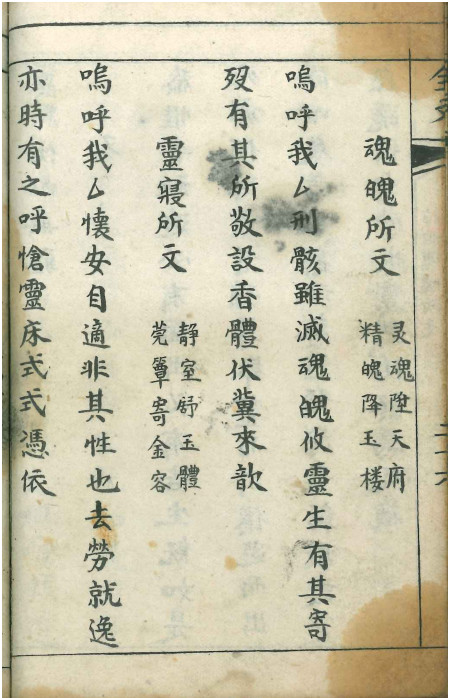 魂魄所文
灵魂陞天府
精魄降玉楼
嗚呼我厶刑骸雖滅魂魄攸靈生有其寄
歿有其所敬設香體伏冀來歆
靈寢所文
静室舒玉體
莞簟寄金容
嗚呼我厶懷安自適非其性也去勞就逸
亦時有之呼愴靈床式式憑依